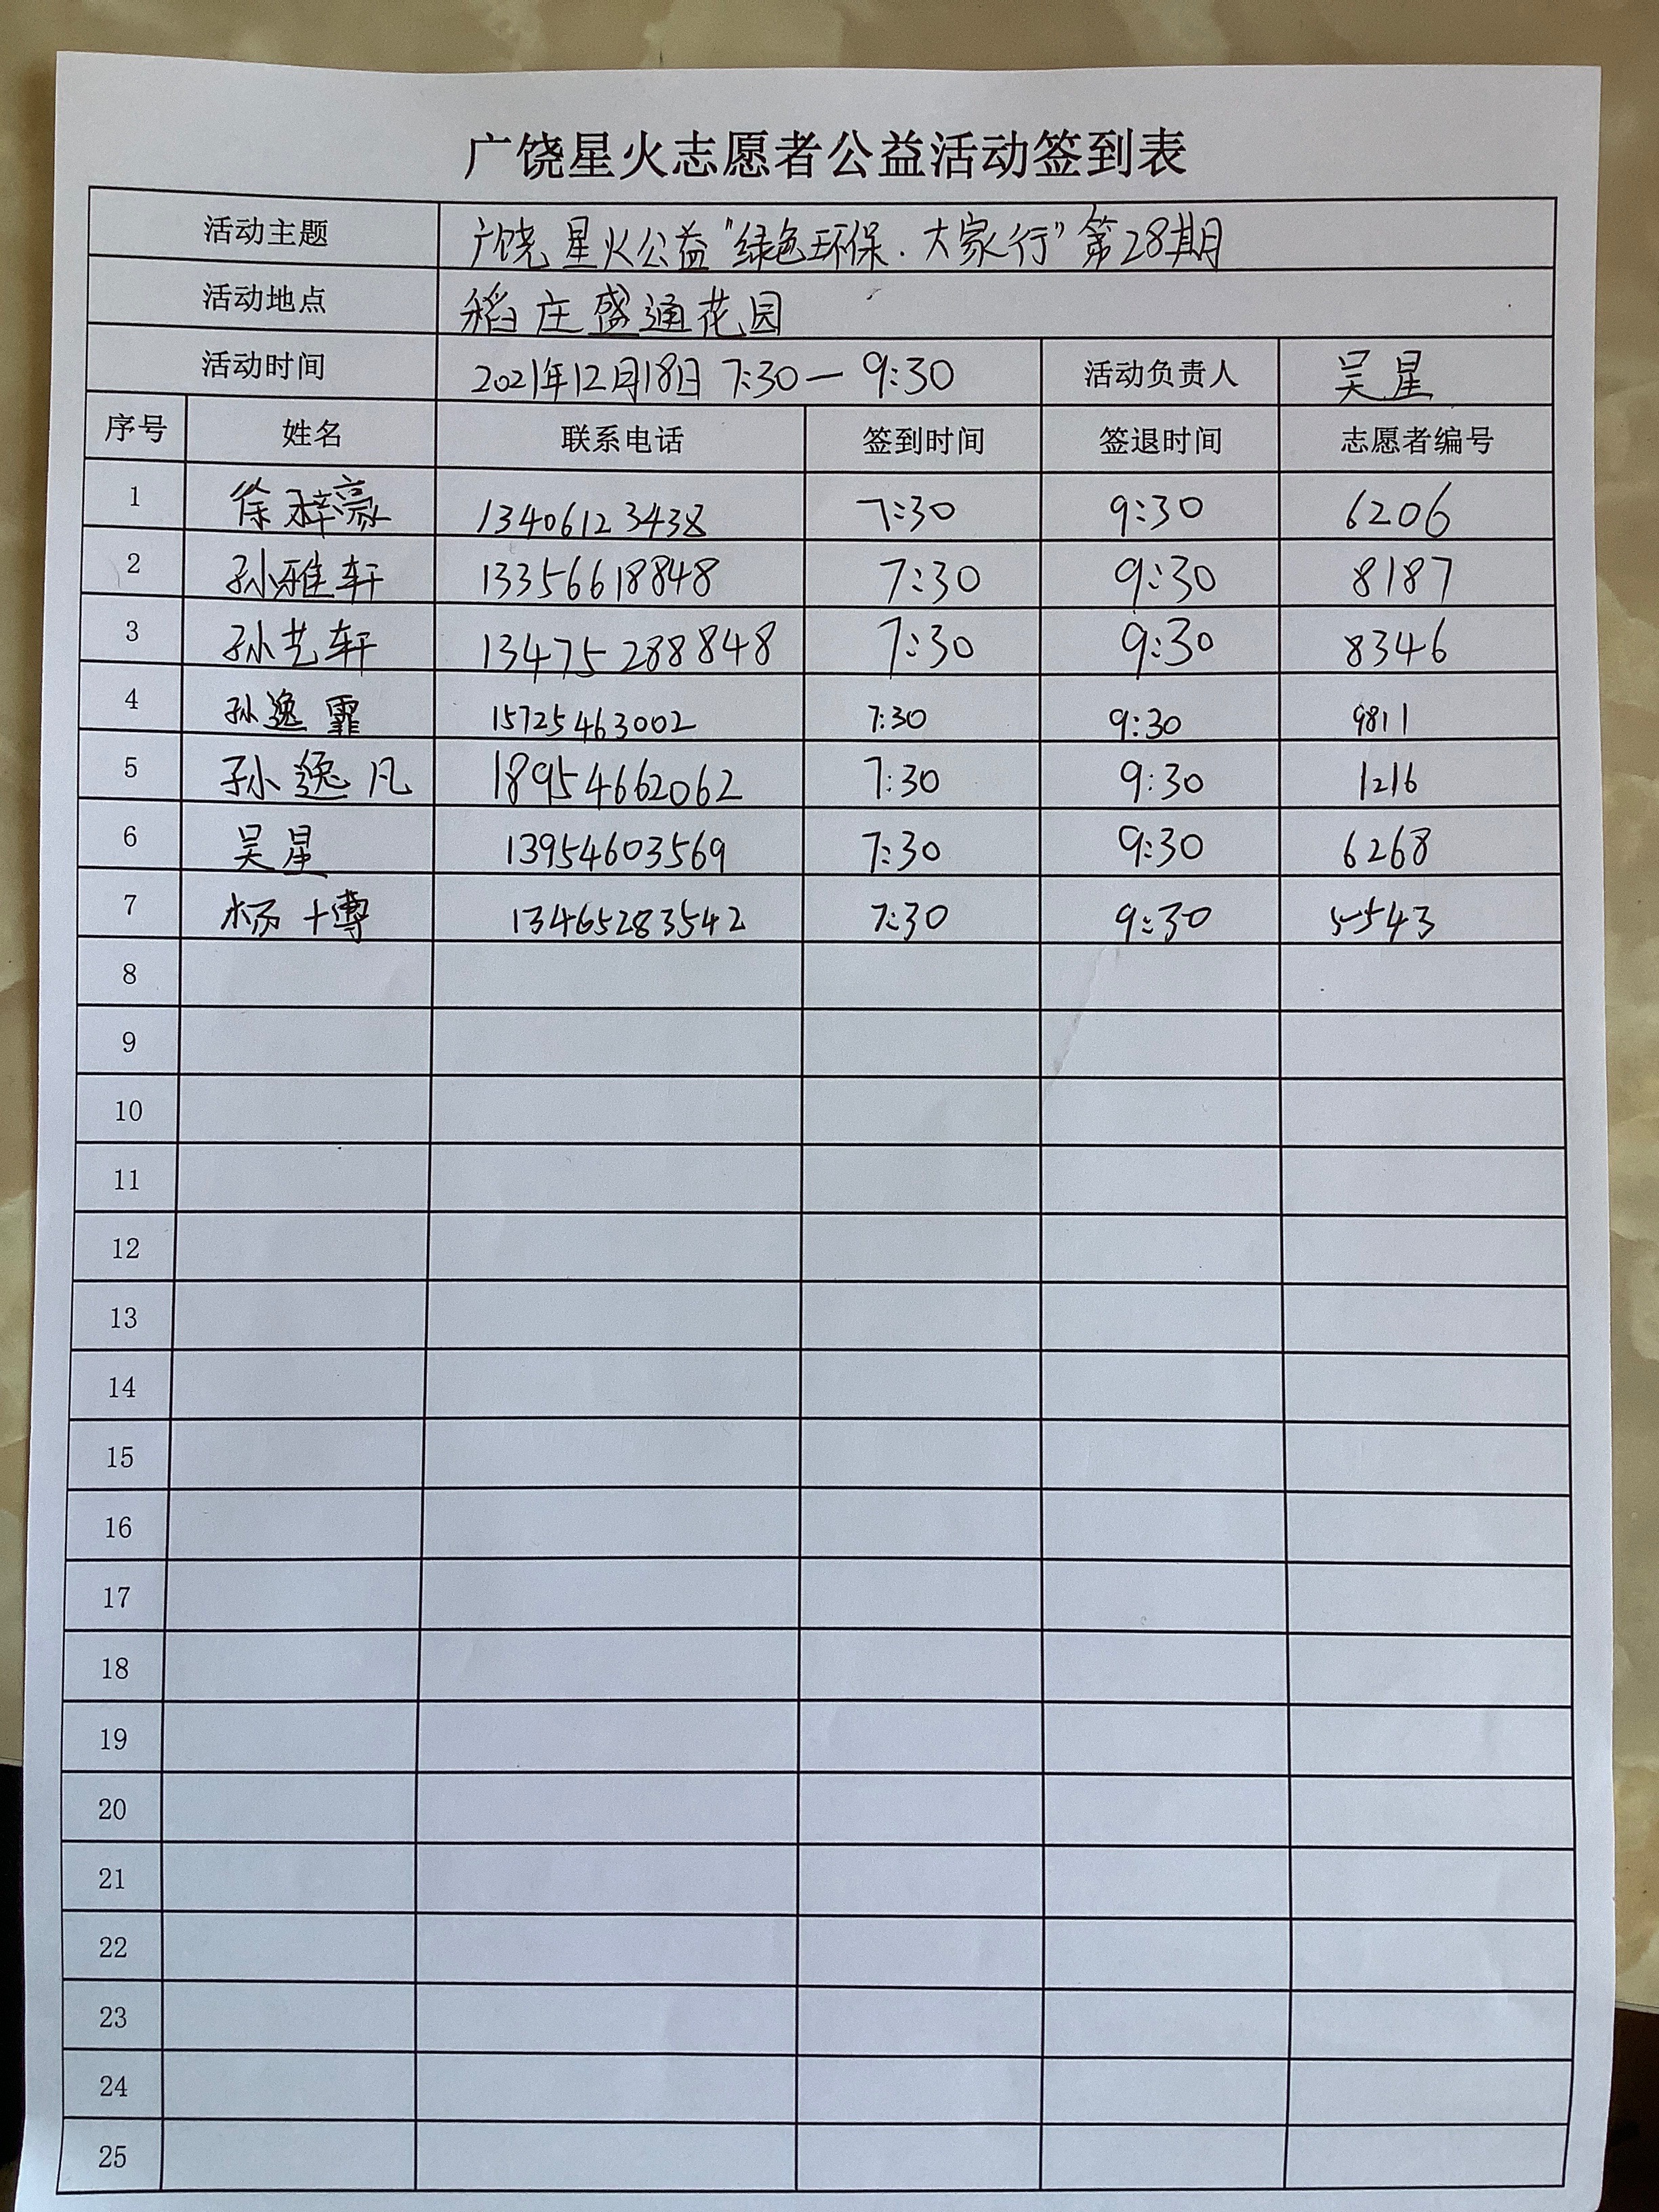 广饶星火志愿者公益活动签到表
活动主题 广饶星火公益"绿色环保.大家行"第28期
活动地点 稻庄盛通花园
活动时间 2021年12月18日 7:30—9:30 活动负责人 吴星
序号 姓名 联系电话 签到时间 签退时间 志愿者编号
1 徐梓豪 13406123438 7:30 9:30 6206
2 孙雅轩 13356618848 7:30 9:30 8187
3 孙艺轩 13475288848 7:30 9:30 8346
4 孙逸霏 15725463002 7:30 9:30 9811
5 孙逸凡 18954662062 7:30 9:30 1216
6 吴星 13954603569 7:30 9:30 6268
7 杨十博 13465283542 7:30 9:30 5543
8
9
10
11
12
13
14
15
16
17
18
19
20
21
22
23
24
25